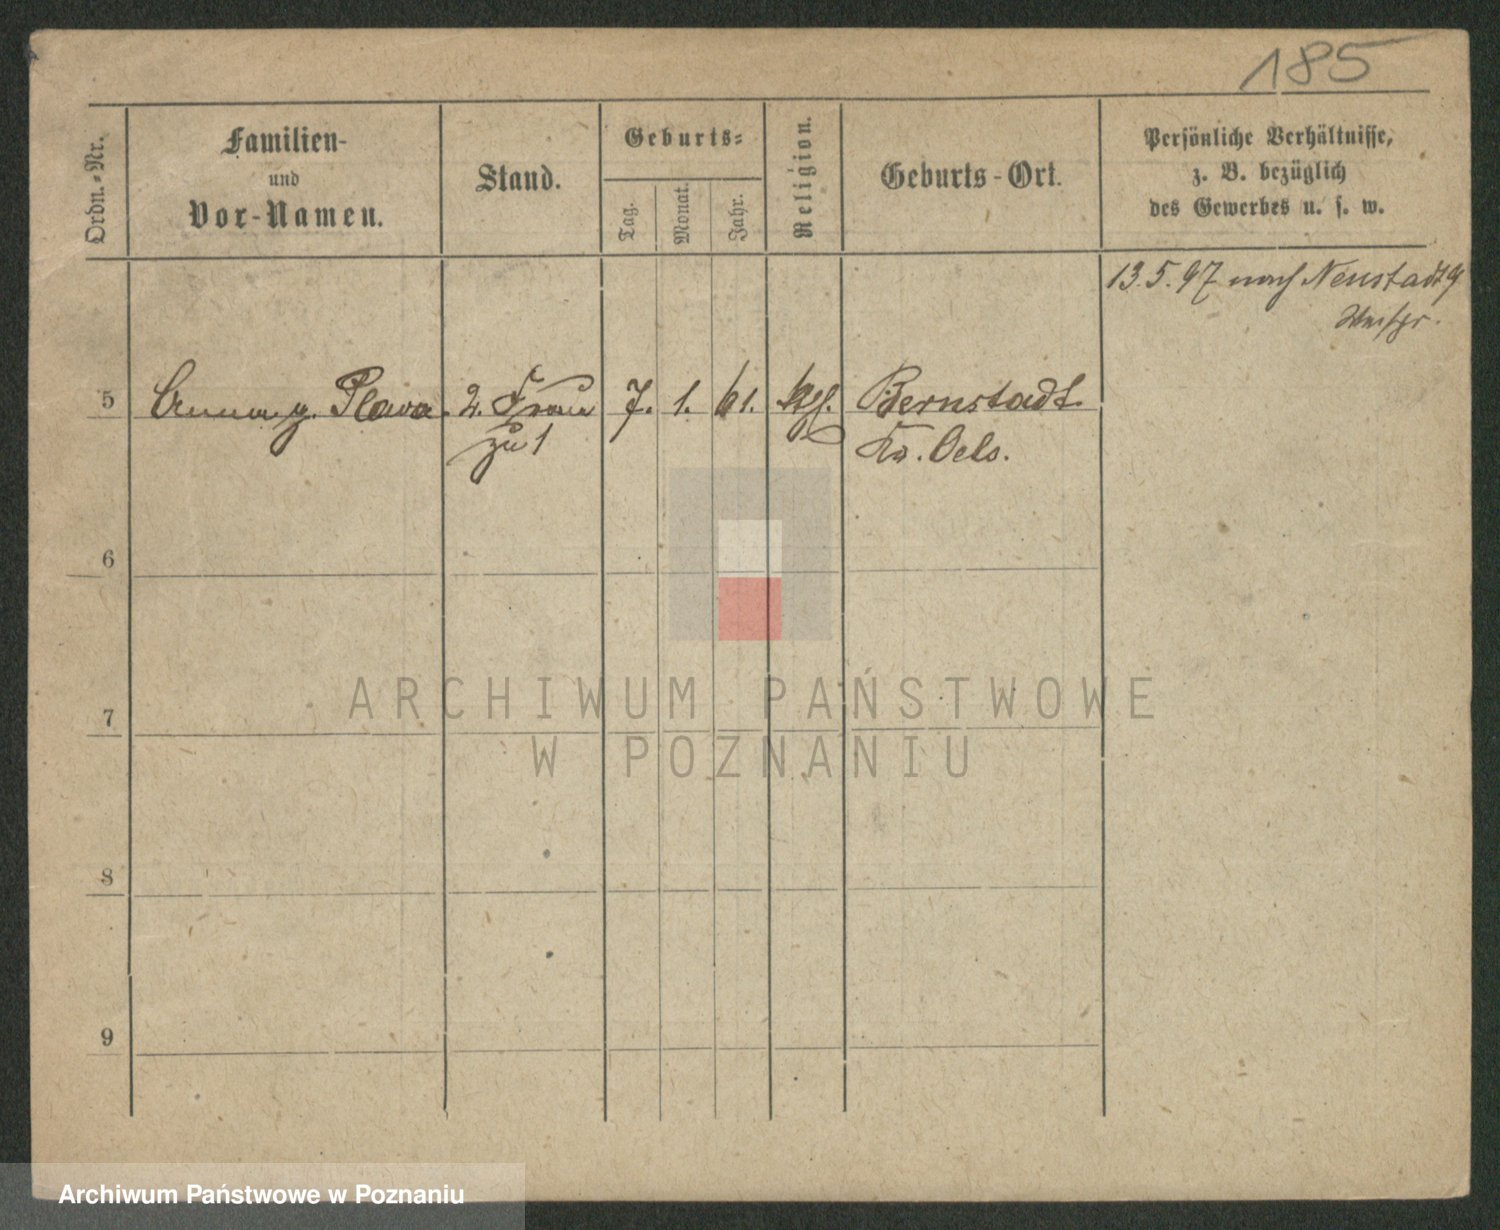 185
Ordn.-Nr.
Familien-
und
Vor-Namen.
Stand.
Geburts-
Tag.
Monat.
Jahr.
Religion.
Geburts-Ort.
Persönliche Verhältnisse,
z. B. bezüglich
des Gewerbes u. s. w.
13.5.97 nach Neustadt
Westpr.
5 Anna g. 2. Frau 7. 1. 61. Bernstadt
zu 1 Kr. Oels.
6
7
8
9
ARCHIWUM PAŃSTWOWE
W POZNANIU
Archiwum Państwowe w Poznaniu